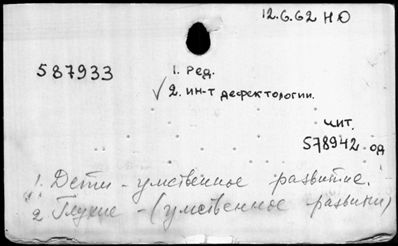 12.6.62 НО
587933
1. Ред.
✓ 2. ин-т дефектологии.
чит.
578942 од
1. Дети - умственное развитие.
2 Глухие - (умственное развитие)